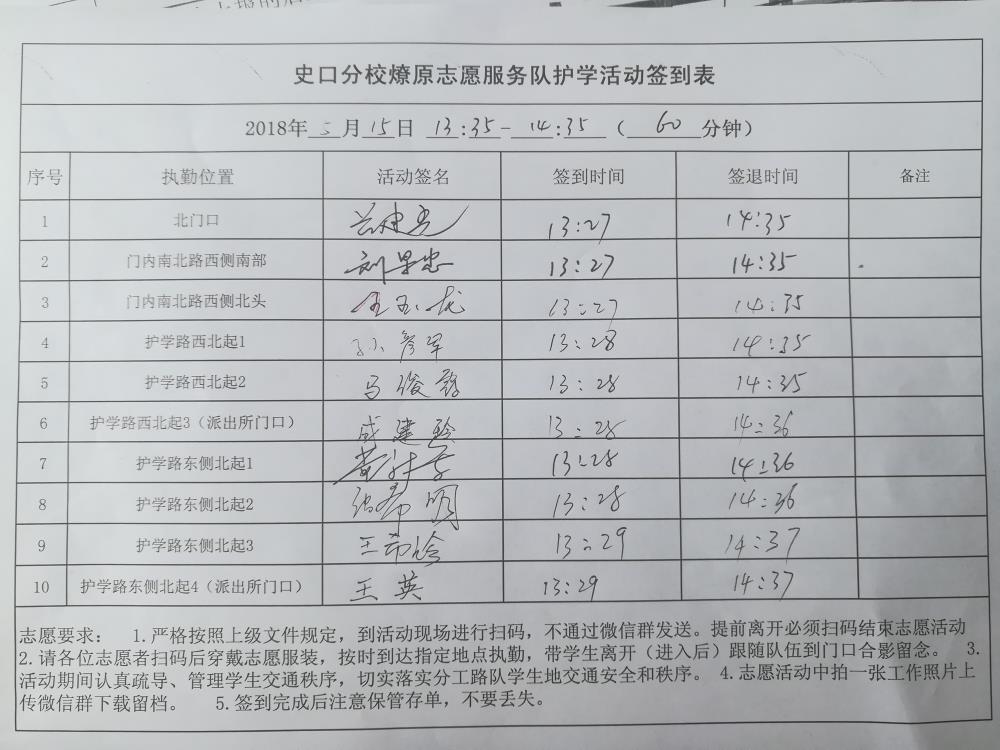 史口分校燎原志愿服务队护学活动签到表
2018年 5 月 15 日 13:35 - 14:35 ( 60 分钟)
序号 执勤位置 活动签名 签到时间 签退时间 备注
1 北门口 13:27 14:35
2 门内南北路西侧南部 13:27 14:35
3 门内南北路西侧北头 王玉龙 13:27 14:35
4 护学路西北起1 孙彦军 13:28 14:35
5 护学路西北起2 马俊 13:28 14:35
6 护学路西北起3（派出所门口） 成建玲 13:28 14:36
7 护学路东侧北起1 13:28 14:36
8 护学路东侧北起2 张希明 13:28 14:36
9 护学路东侧北起3 王希玲 13:29 14:37
10 护学路东侧北起4（派出所门口） 王英 13:29 14:37
志愿要求： 1.严格按照上级文件规定，到活动现场进行扫码，不通过微信群发送。提前离开必须扫码结束志愿活动
2.请各位志愿者扫码后穿戴志愿服装，按时到达指定地点执勤，带学生离开（进入后）跟随队伍到门口合影留念。 3.
活动期间认真疏导、管理学生交通秩序，切实落实分工路队学生地交通安全和秩序。 4.志愿活动中拍一张工作照片上
传微信群下载留档。 5.签到完成后注意保管存单，不要丢失。